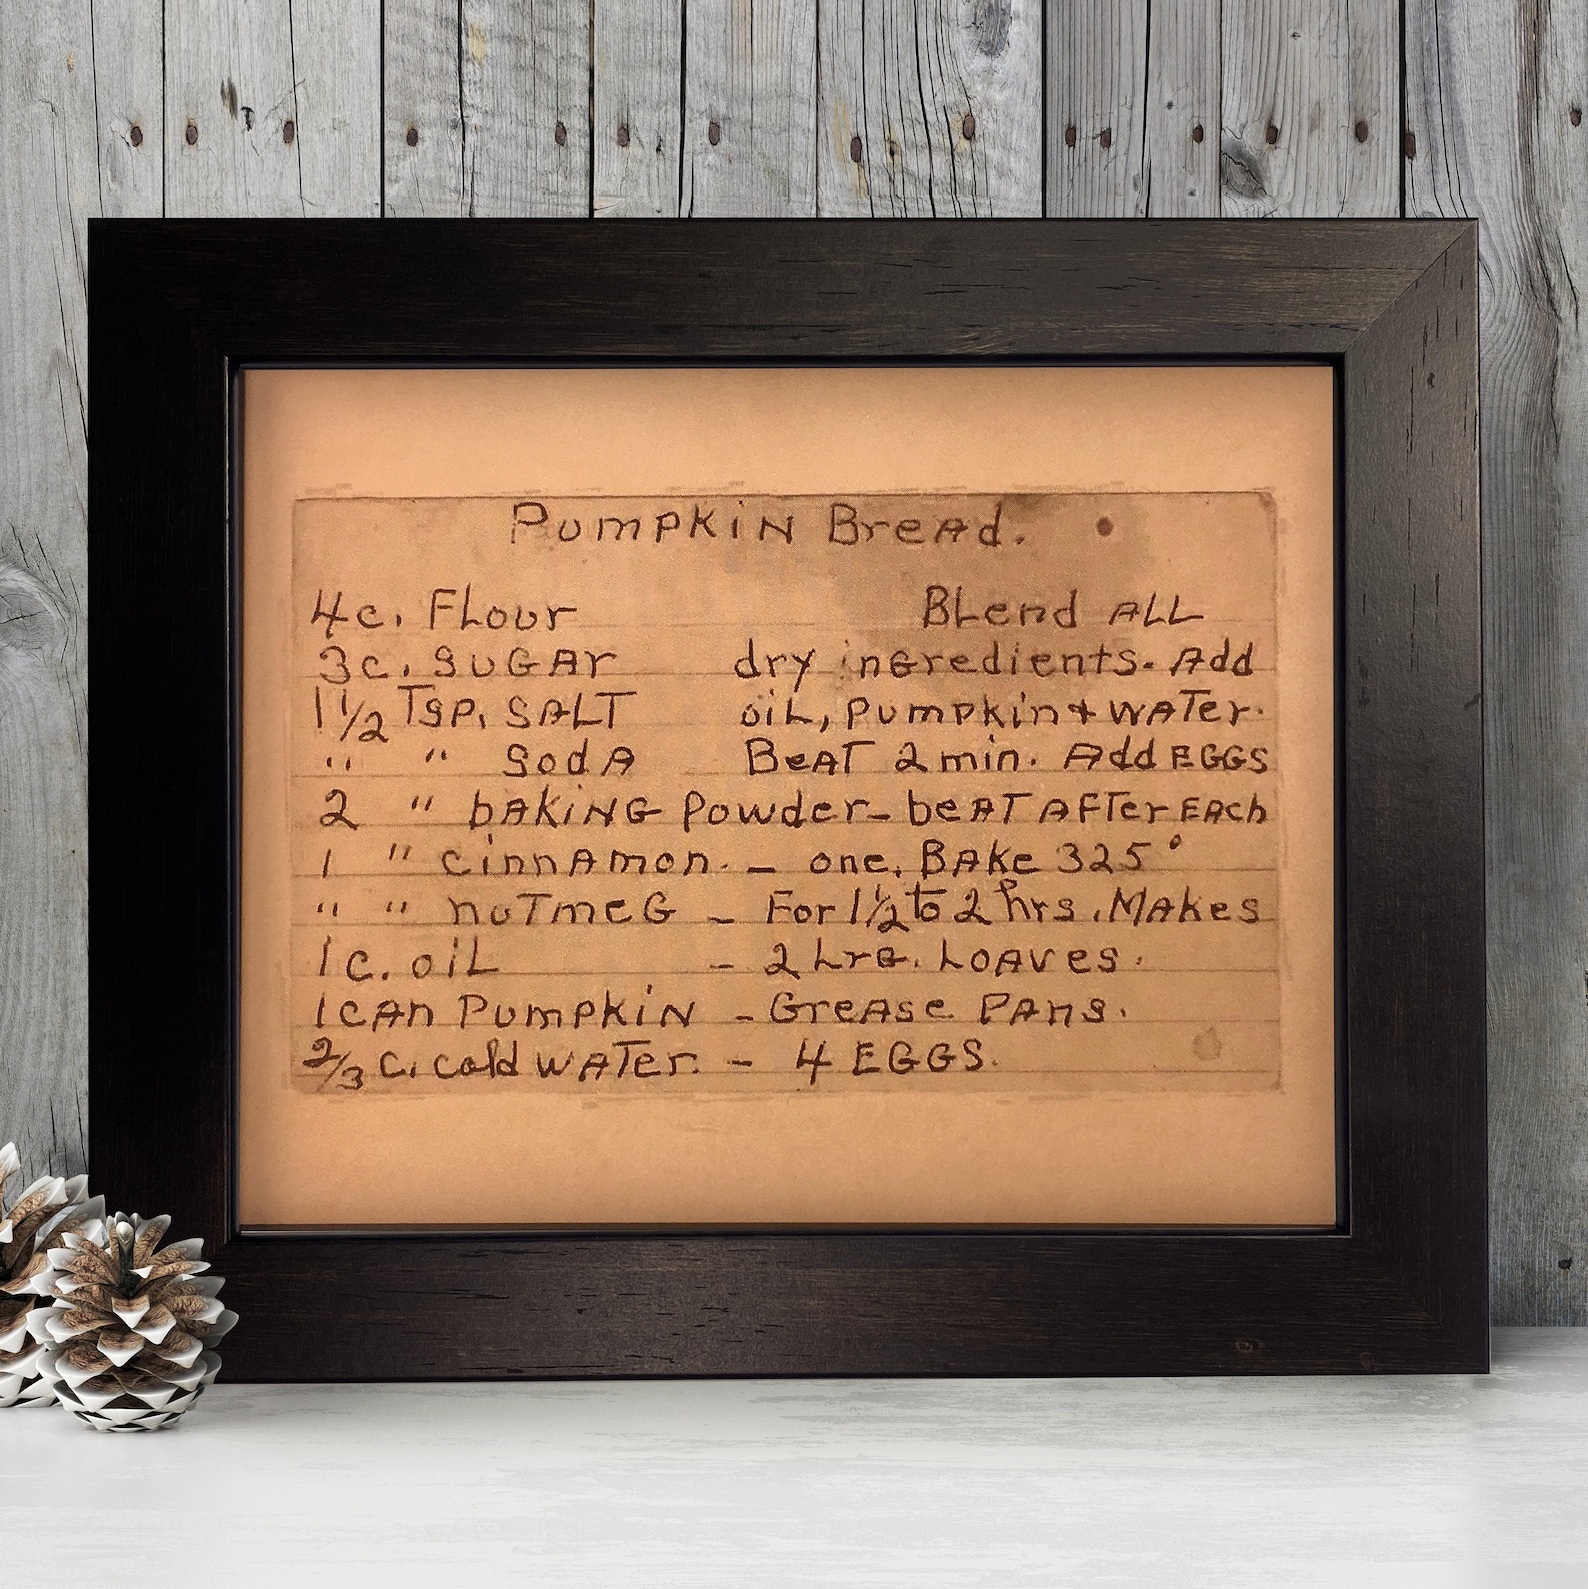 Pumpkin Bread.
4c. Flour Blend ALL
3c. SUGAr dry ingredients. Add
1 1/2 Tsp. SALT oiL, pumpkin + WATer.
" " SodA BeAT 2 min. Add EGGS
2 " bAKiNG Powder - beAT AFTer EAch
1 " cinnAmon. - one. BAke 325°
" " nuTmeG - For 1 1/2 to 2 hrs. MAkes
1 c. oiL - 2 Lrg. LOAves.
1 cAn PumpkiN - GreAse PAns.
2/3 c. cold WATer. - 4 EGGS.